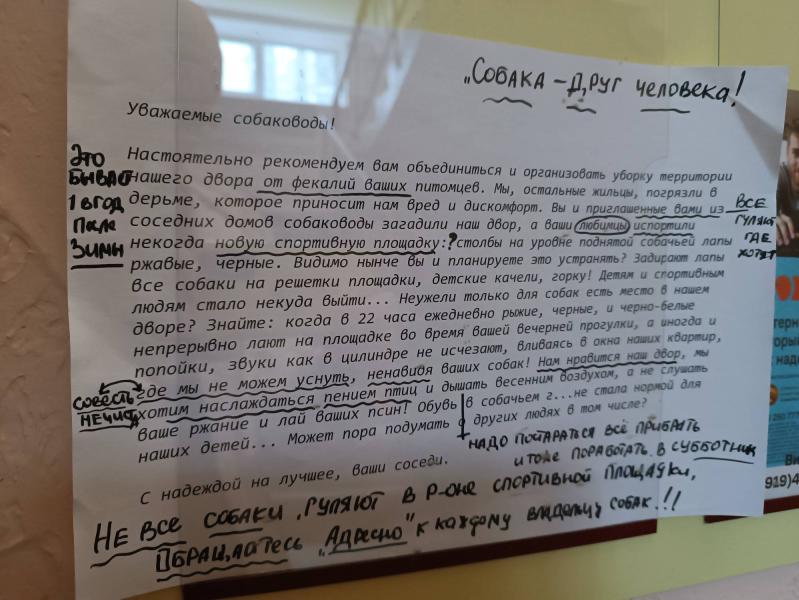 „СОБАКА – ДРУГ ЧЕЛОВЕКА!
Уважаемые собаководы!
ЭТО
БЫВАЕТ
1 В ГОД
ПОСЛЕ
ЗИМЫ
Настоятельно рекомендуем вам объединиться и организовать уборку территории
нашего двора от фекалий ваших питомцев. Мы, остальные жильцы, погрязли в
дерьме, которое приносит нам вред и дискомфорт. Вы и приглашенные вами из
соседних домов собаководы загадили наш двор, а ваши любимцы испортили
некогда новую спортивную площадку:? столбы на уровне поднятой собачьей лапы
ржавые, черные. Видимо нынче вы и планируете это устранять? Задирают лапы
все собаки на решетки площадки, детские качели, горку! Детям и спортивным
людям стало некуда выйти... Неужели только для собак есть место в нашем
дворе? Знайте: когда в 22 часа ежедневно рыжие, черные, и черно-белые
непрерывно лают на площадке во время вашей вечерней прогулки, а иногда и
попойки, звуки как в цилиндре не исчезают, вливаясь в окна наших квартир,
где мы не можем уснуть, ненавидя ваших собак! Нам нравится наш двор, мы
хотим наслаждаться пением птиц и дышать весенним воздухом, а не слушать
ваше ржание и лай ваших псин! Обувь в собачьем г...не стала нормой для
наших детей... Может пора подумать о других людях в том числе?
С надеждой на лучшее, ваши соседи.
ВСЕ
ГУЛЯЮТ
ГДЕ
ХОТЯТ
СОВЕСТЬ
НЕЧИСТА
НАДО ПОСТАРАТЬСЯ ВСЁ ПРИБРАТЬ
И ТОЖЕ ПОРАБОТАТЬ В СУББОТНИК
НЕ ВСЕ СОБАКИ ГУЛЯЮТ В Р-ОНЕ СПОРТИВНОЙ ПЛОЩАДКИ,
ОБРАЩАЙТЕСЬ „АДРЕСНО" К КАЖДОМУ ВЛАДЕЛЬЦУ СОБАК!!!
919)4